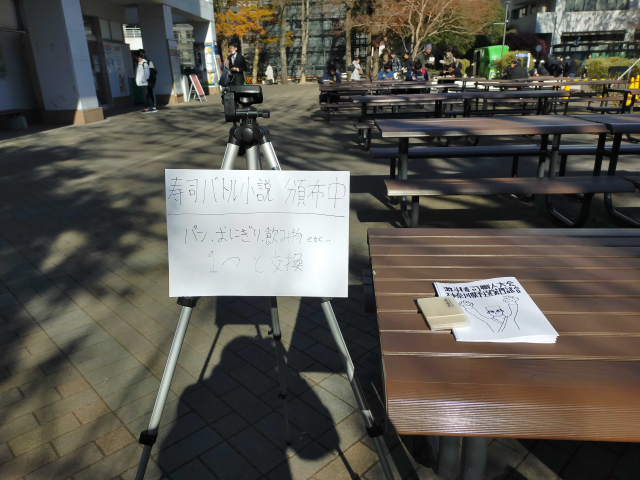 寿司バトル小説 頒布中
パン、おにぎり、飲み物 etc...
1つと交換